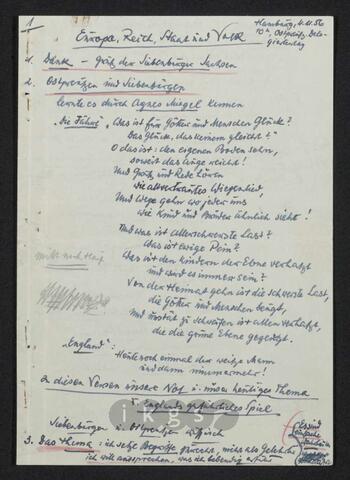 1
Hamburg, 4.11.56
Europa, Reich, Staat und Volk
1. Dank – Gruß der Siebenbürger Sachsen
2. Ostpreußen und Siebenbürgen
lernte es durch Agnes Miegel kennen
"Die Fähre" "Was ist für Götter und Menschen Glück?
Das Glück, das keinem gleicht?"
O das ist: den eigenen Boden sehn,
soweit das Auge reicht!
Und Gruß und Rede hören
wie altvertrautes Wiegenlied,
Und Wege gehn wo jeder uns
wie Kind und Bruder ähnlich sieht!
Und was ist allerschwerste Last?
Was ist ewige Pein?
Was ist den Kindern der Ebene verhaßt
und wird es immer sein?
Von der Heimat gehn ist die schwerste Last,
die Götter und Menschen beugt,
Und unstät zu schweifen ist allen verhaßt,
die die grüne Ebene gezeugt.
"England":
Heute noch einmal der weiße Mann
und dann nimmermehr!
In diesen Versen unsere Not u. unser heutiges Thema
u. Englands gefährliches Spiel
ikgs
Siebenbürgen u. Ostpreußen
3. Das Thema: ich setze Begriffe
ich will aussprechen, was ich lebendig